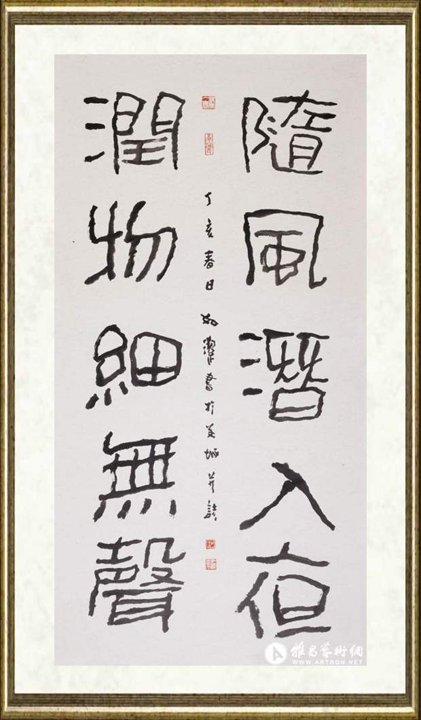 隨風潛入夜
潤物細無聲
丁亥春日
雅昌藝術網
WWW.ARTRON.NET